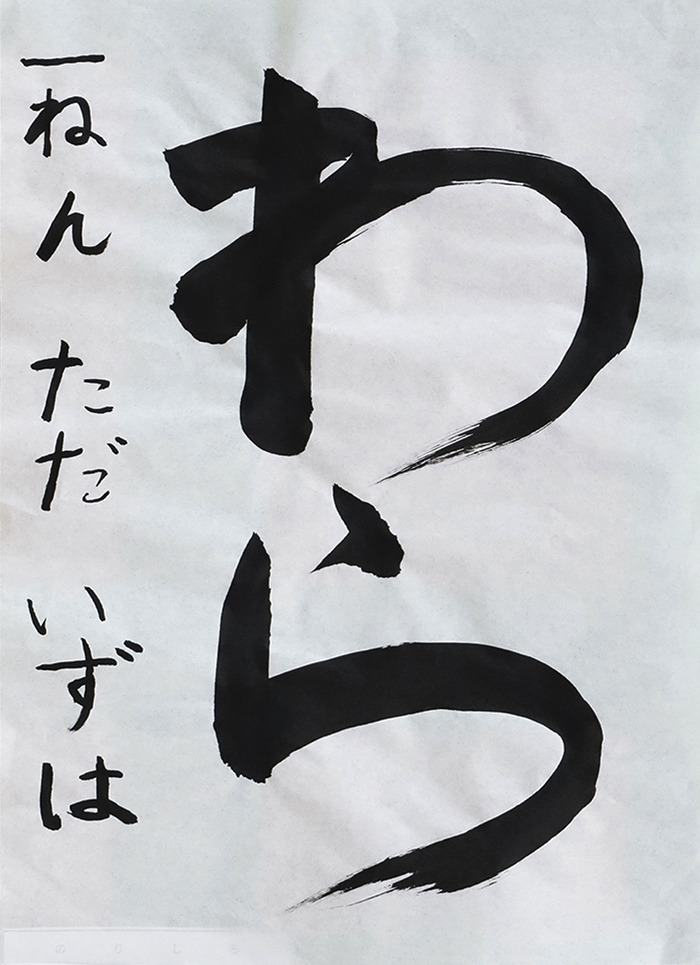 わら
一ねん ただ いずは
のりしろ